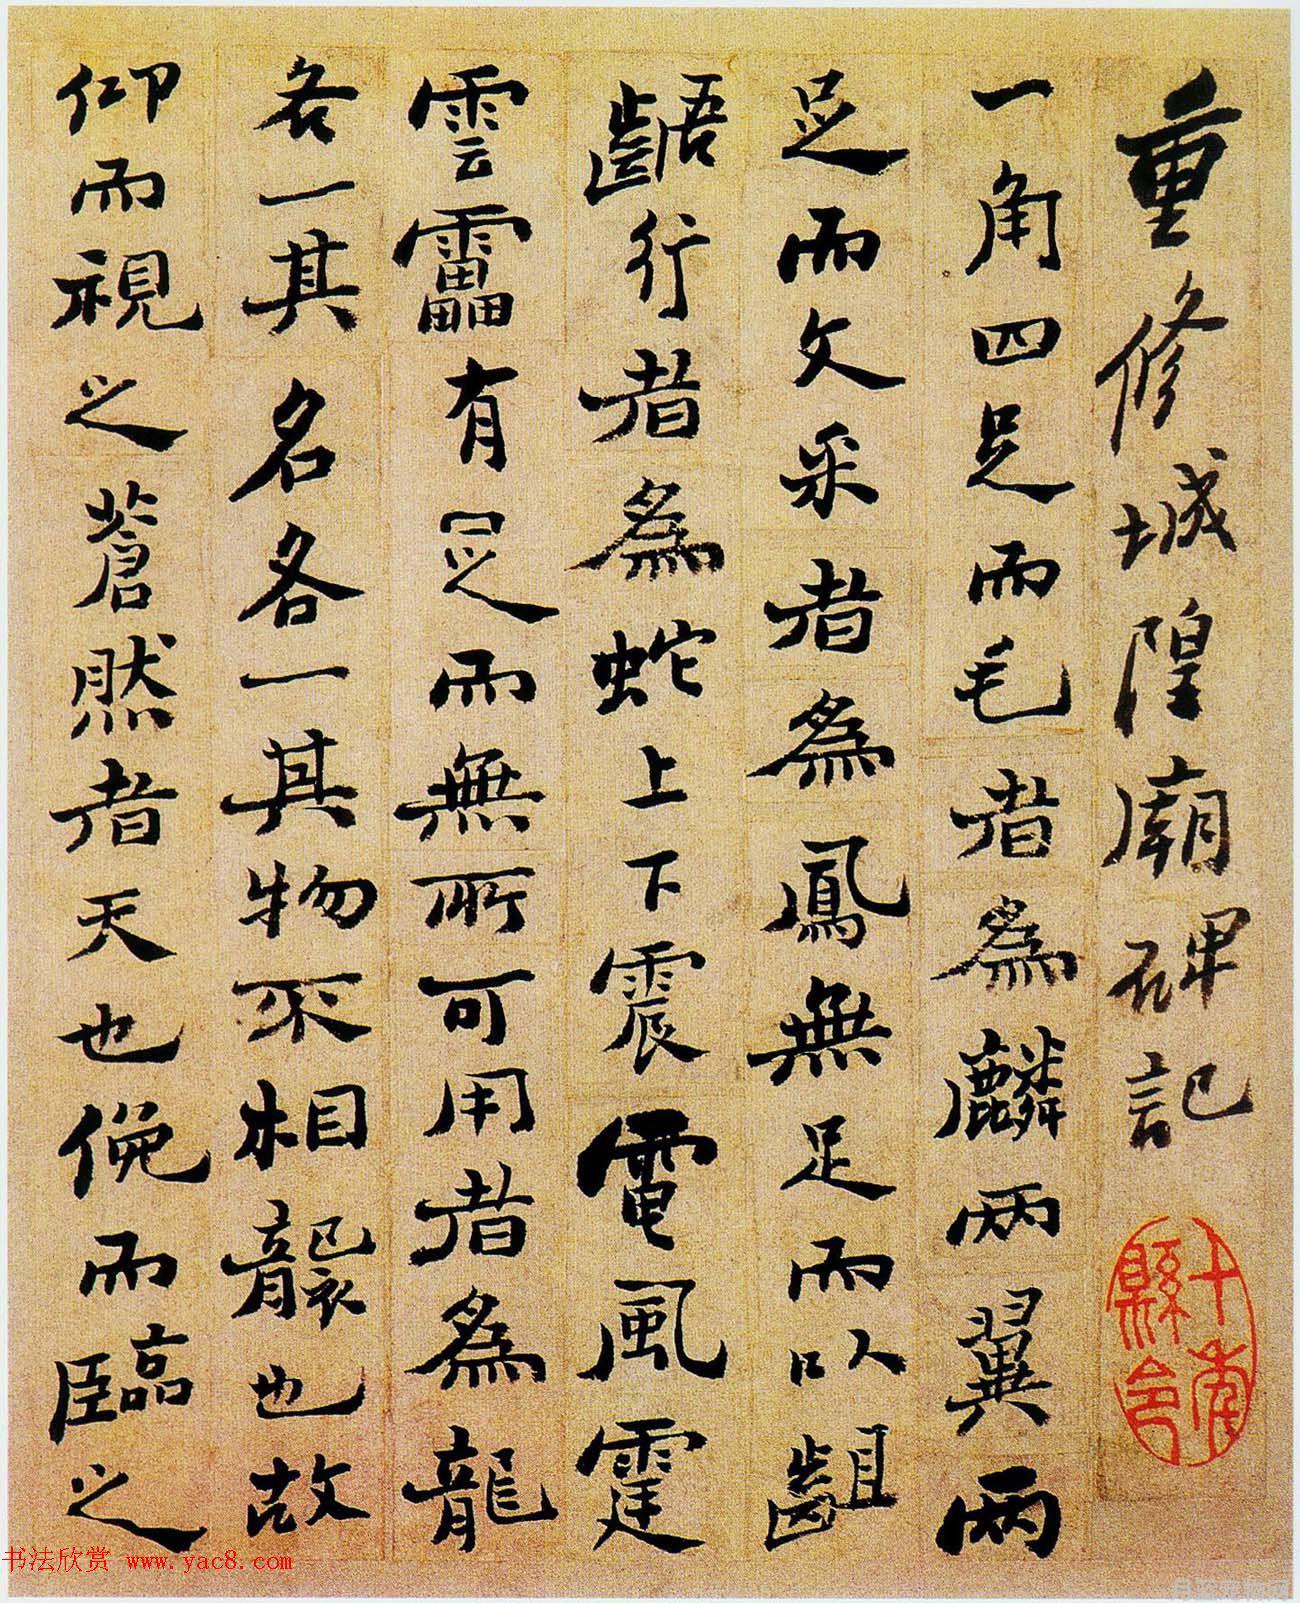 重修城隍廟碑記
十年縣令
一角四足而毛者為麟兩翼兩
足而文采者為鳳無足而以齟
齬行者為蛇上下震電風霆
雲靁有足而無所可用者為龍
各一其名各一其物不相襲也故
仰而視之蒼然者天也俛而臨之
书法欣赏 www.yac8.com